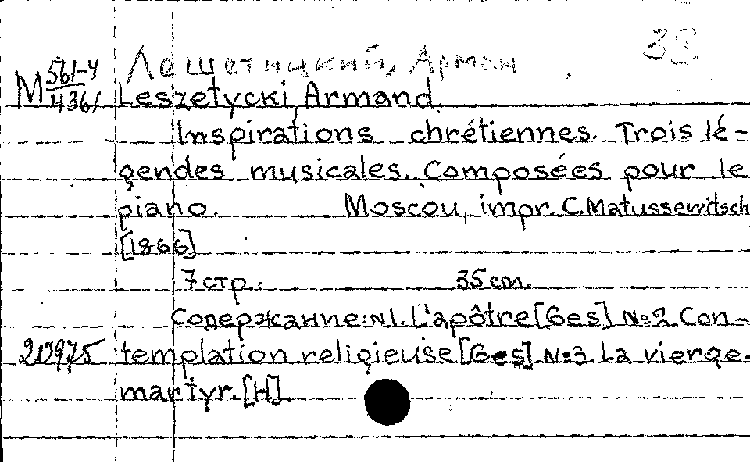 Лещетицкий, Арман 33
М 561-4/436 Leszetycki, Armand.
Inspirations chrétiennes. Trois lé-
gendes musicales. Composées pour le
piano. Moscou, impr. C. Matussewitsch
[1866]
7 стр. 35 cm.
Содержание: N1. L'apôtre [Ges] №2. Con-
templation religieuse [Ges] №3. La vierge-
martyr. [H].